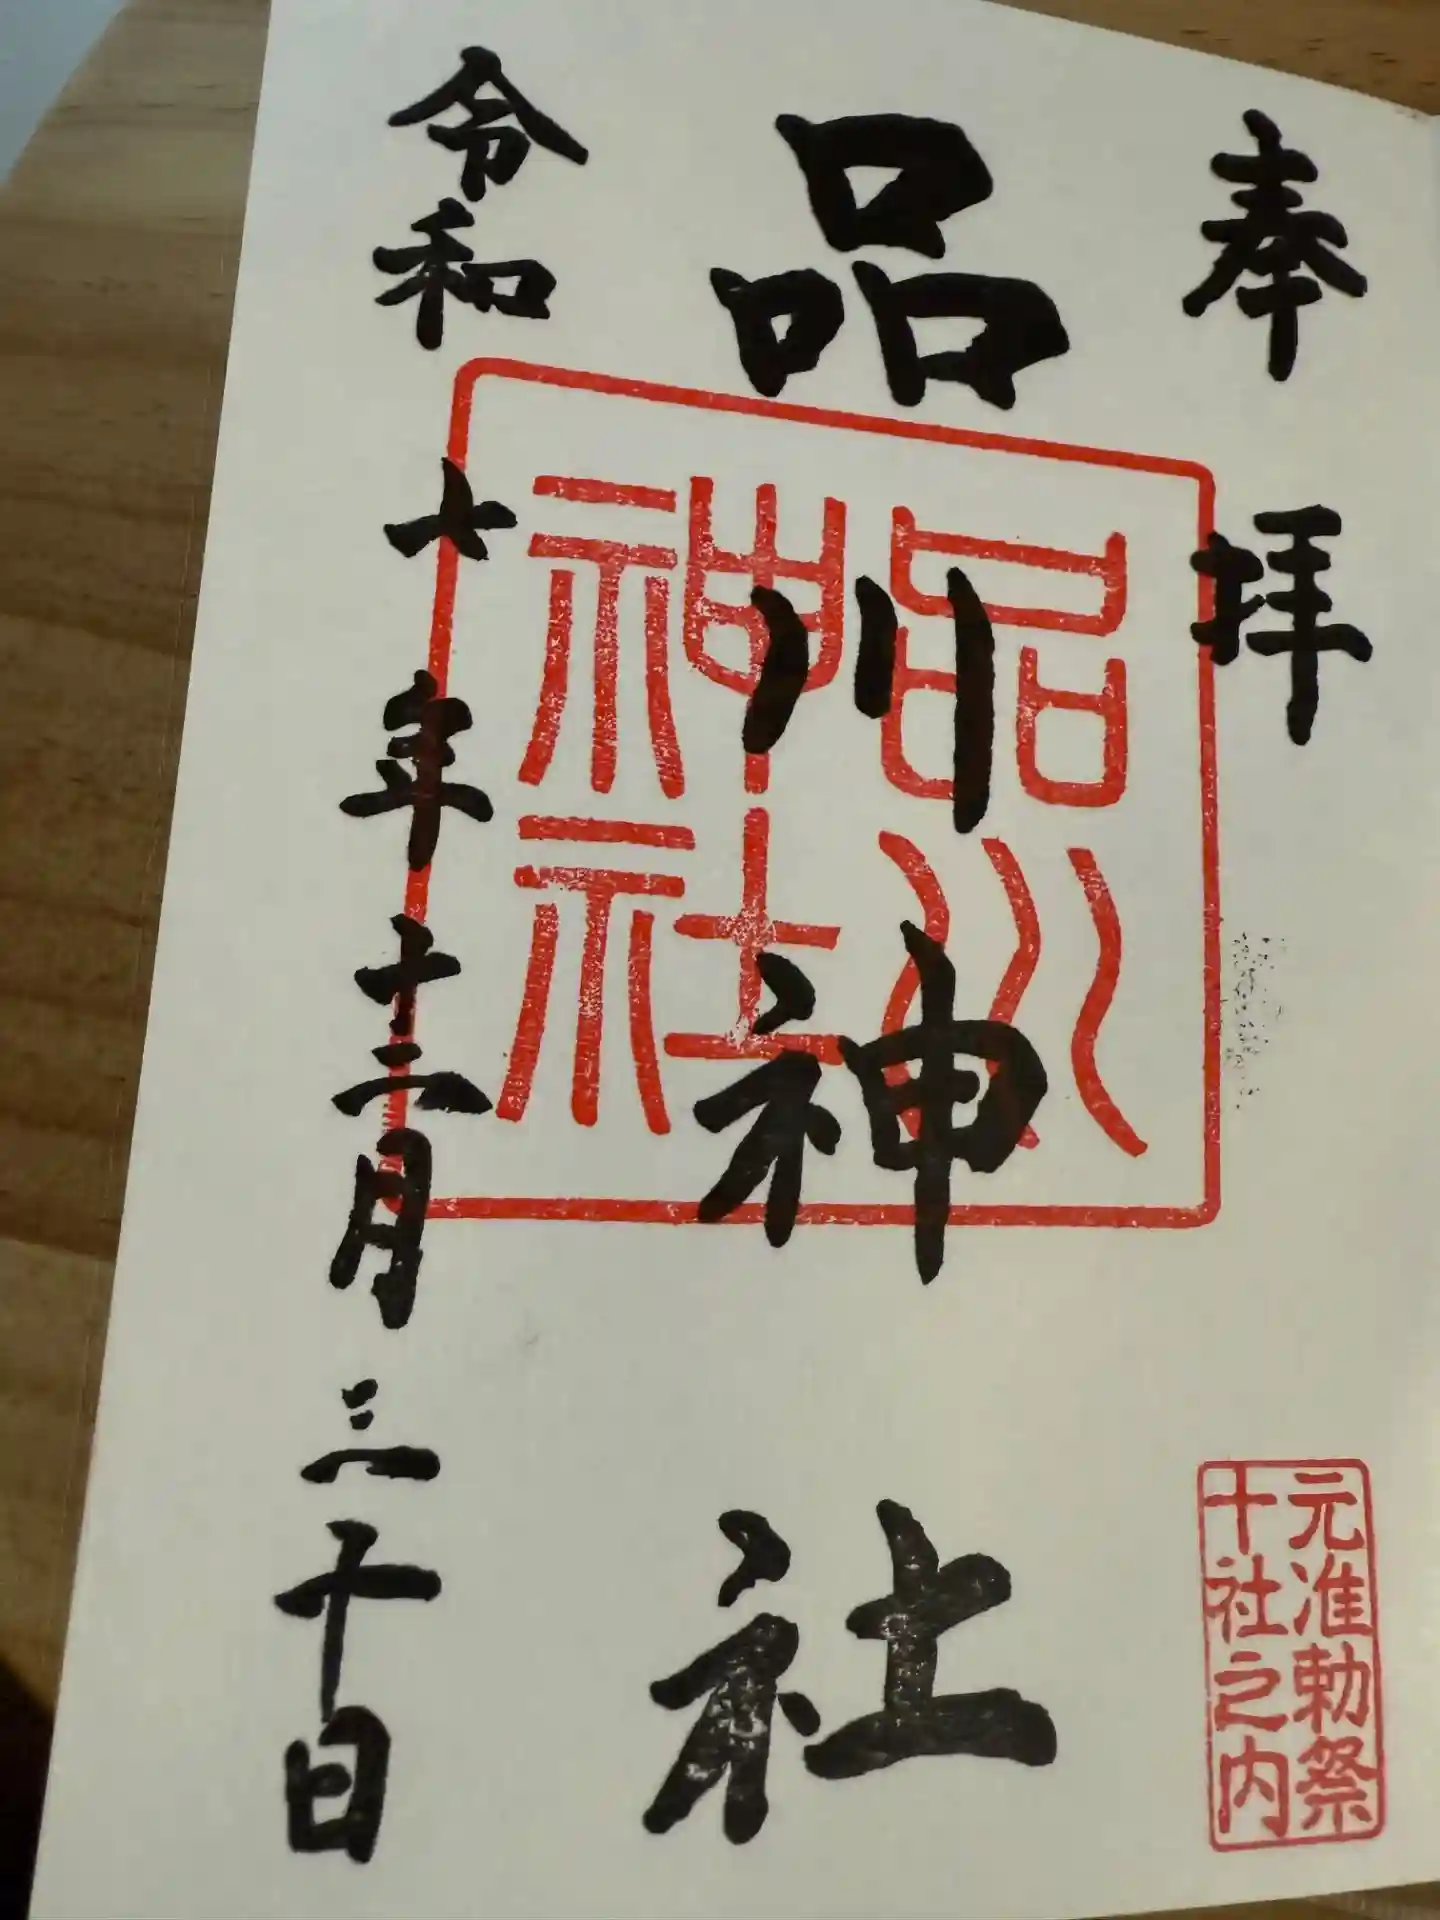 奉拝
品川神社
品川
神社
令和七年十二月三十日
元准勅祭
十社之内